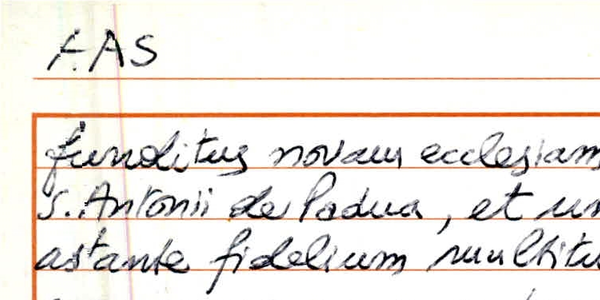 FAS
funditus novam ecclesiam
S. Antonii de Padua, et un
astante fidelium multitu